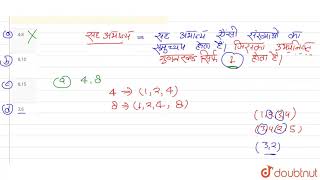 (a) 4,8 X
(b) 8,10
(c) 6,10
(d) 3,6
सह अभाज्य = सह अभाज्य ऐसी संख्याओं का
समुच्चय होता है जिसका उभयनिष्ठ
गुणनखण्ड सिर्फ 1 होता है।
(a) 4, 8
4 → (1, 2, 4)
8 → (1, 2, 4, 8)
(3, 2)
doubtnut